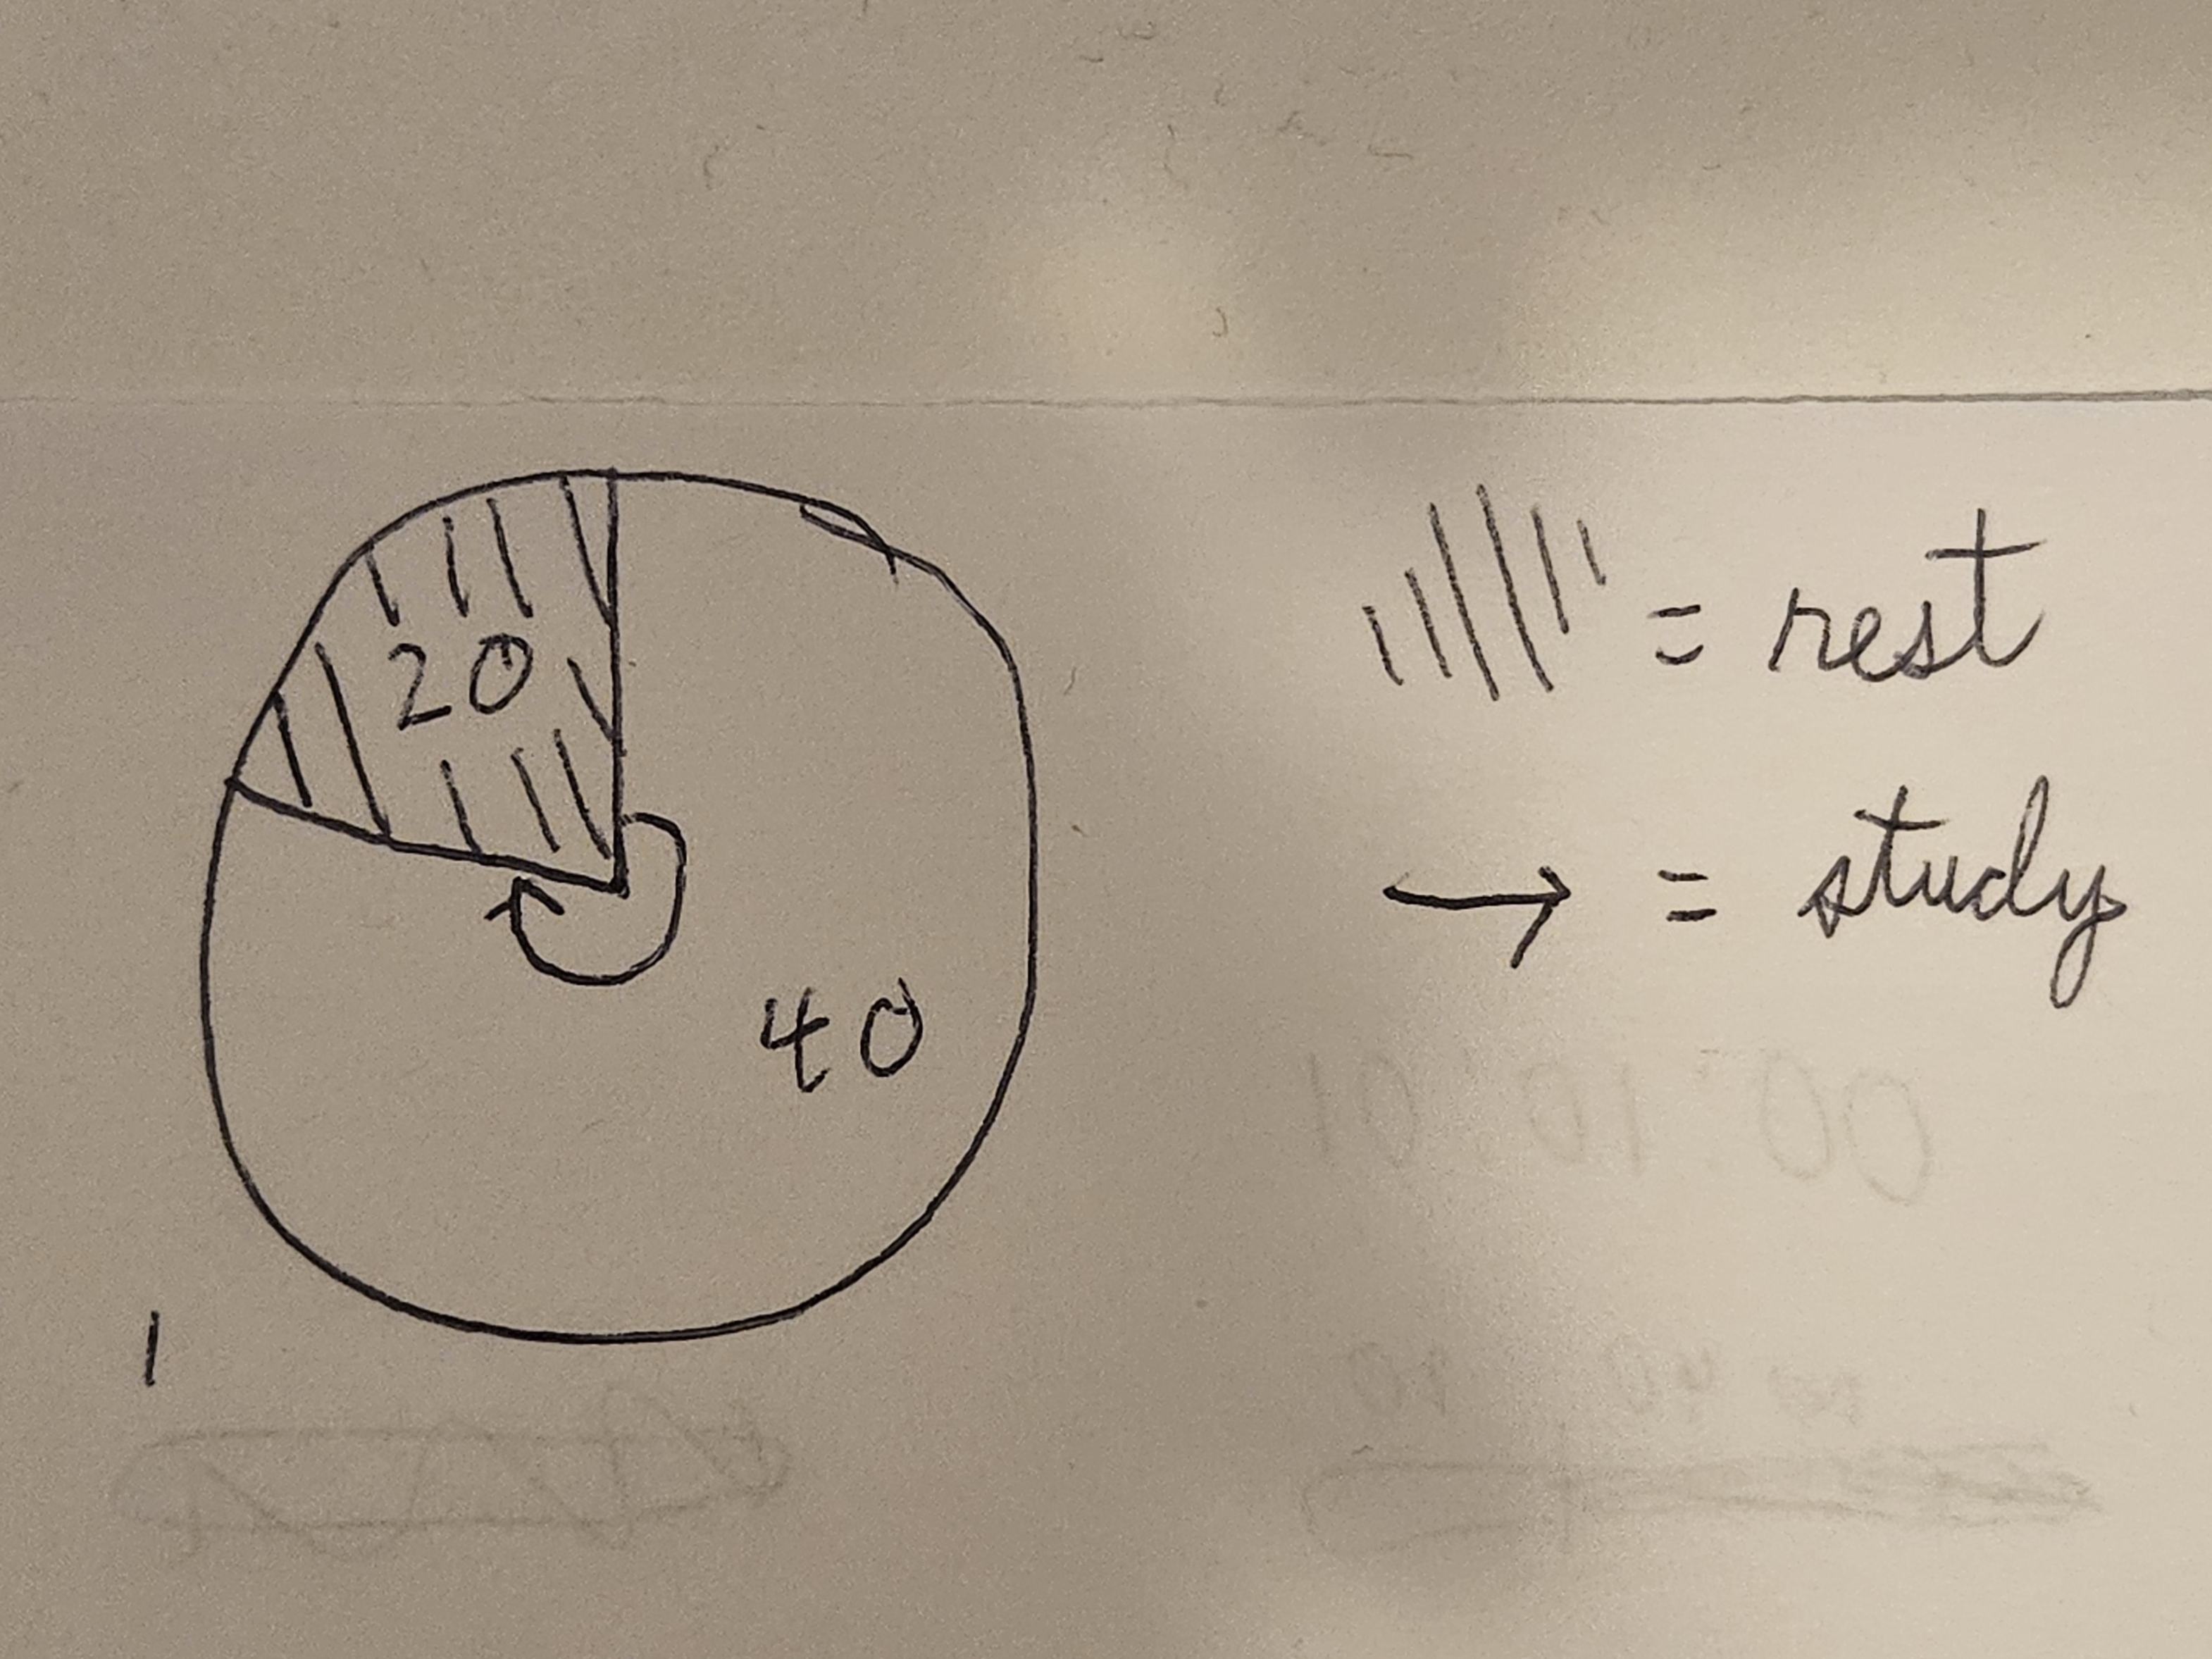 20
40
= rest
→ = study